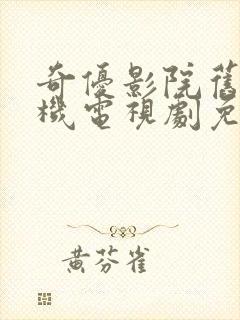 奇優影院舊
機電視劇免
黃芬雀